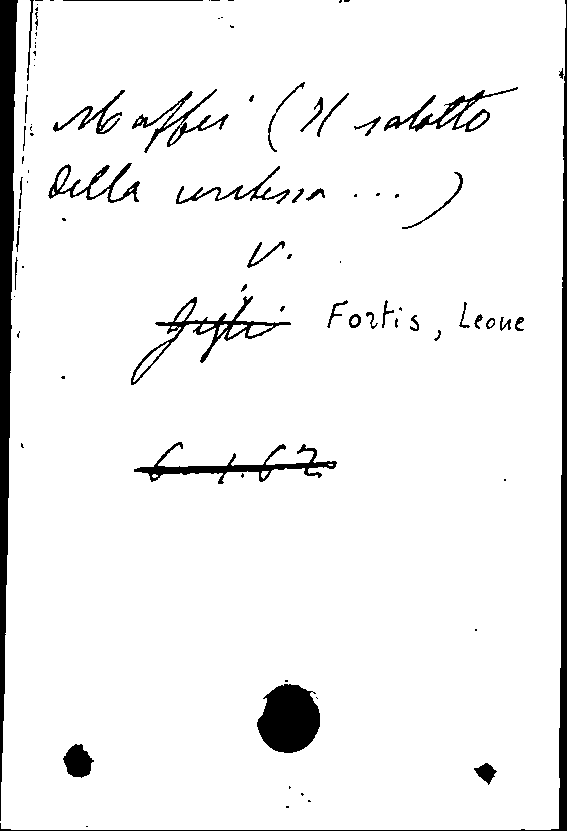 Maffei (Il salotto
della contessa ...)
V.
Gigli Fortis, Leone
6.1.62